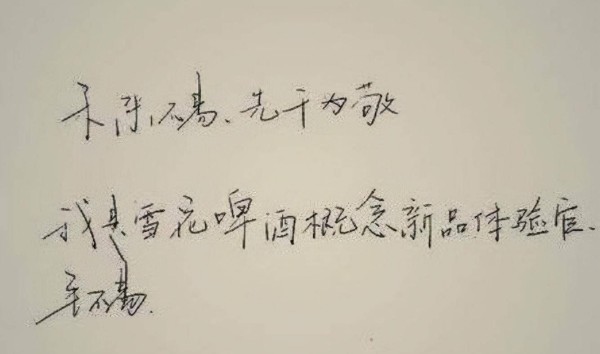 不易、先干为敬
我是雪花啤酒概念新品体验官、
不易.